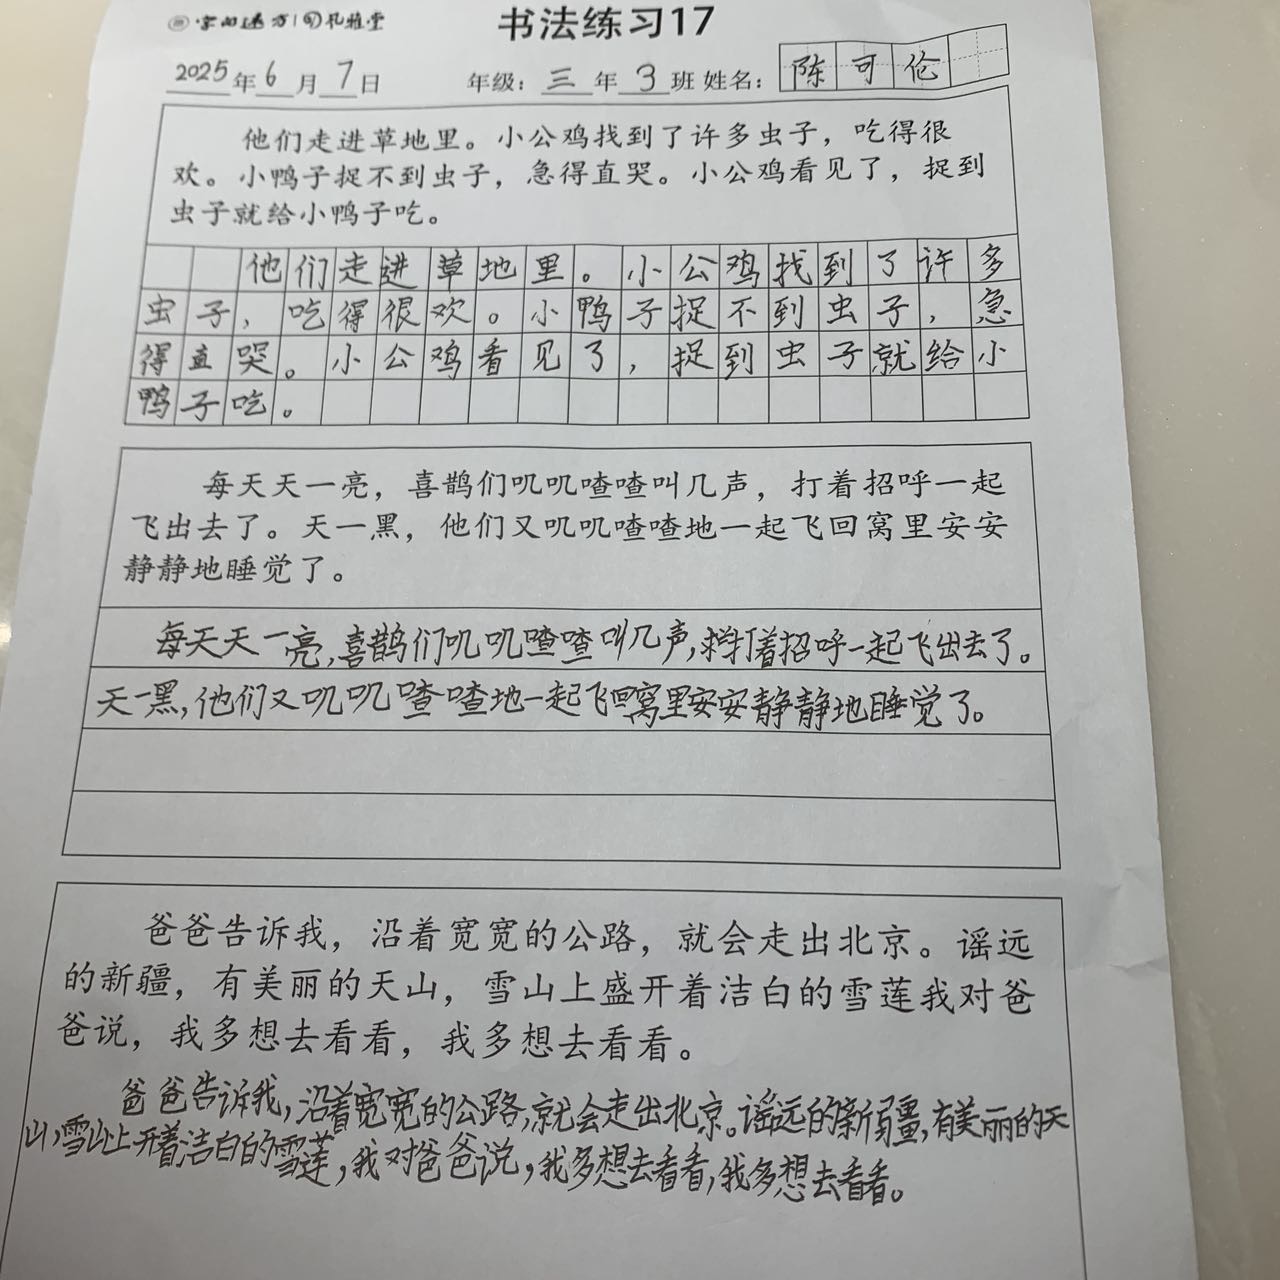 字向速方 孔雅堂 书法练习17
2025年6月7日 年级：三年3班 姓名：陈可伦
他们走进草地里。小公鸡找到了许多虫子，吃得很
欢。小鸭子捉不到虫子，急得直哭。小公鸡看见了，捉到
虫子就给小鸭子吃。
他们走进草地里。小公鸡找到了许多
虫子，吃得很欢。小鸭子捉不到虫子，急
得直哭。小公鸡看见了，捉到虫子就给小
鸭子吃。
每天天一亮，喜鹊们叽叽喳喳叫几声，打着招呼一起
飞出去了。天一黑，他们又叽叽喳喳地一起飞回窝里安安
静静地睡觉了。
每天天一亮，喜鹊们叽叽喳喳叫几声，打着招呼一起飞出去了。
天一黑，他们又叽叽喳喳地一起飞回窝里安安静静地睡觉了。
爸爸告诉我，沿着宽宽的公路，就会走出北京。谣远
的新疆，有美丽的天山，雪山上盛开着洁白的雪莲我对爸
爸说，我多想去看看，我多想去看看。
爸爸告诉我，沿着宽宽的公路，就会走出北京。谣远的新疆，有美丽的天
山，雪山上开着洁白的雪莲，我对爸爸说，我多想去看看，我多想去看看。